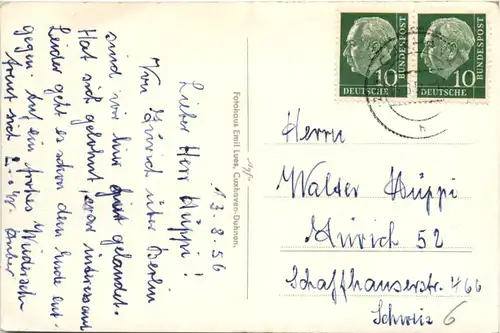 13.8.56
Lieber Herr Hüppi!
Von Zürich über Berlin
sind wir hier gut gelandet.
Hat sich gelohnt, war interessant
Leider geht es schon dem Ende ent-
gegen. Auf ein frohes Wiedersehn
freut sich
Fotohaus Emil Lues, Cuxhaven-Duhnen.
10
DEUTSCHE
BUNDESPOST
10
DEUTSCHE
BUNDESPOST
Herrn
Walter Hüppi
Zürich 52
Schaffhauserstr. 466
Schweiz 6